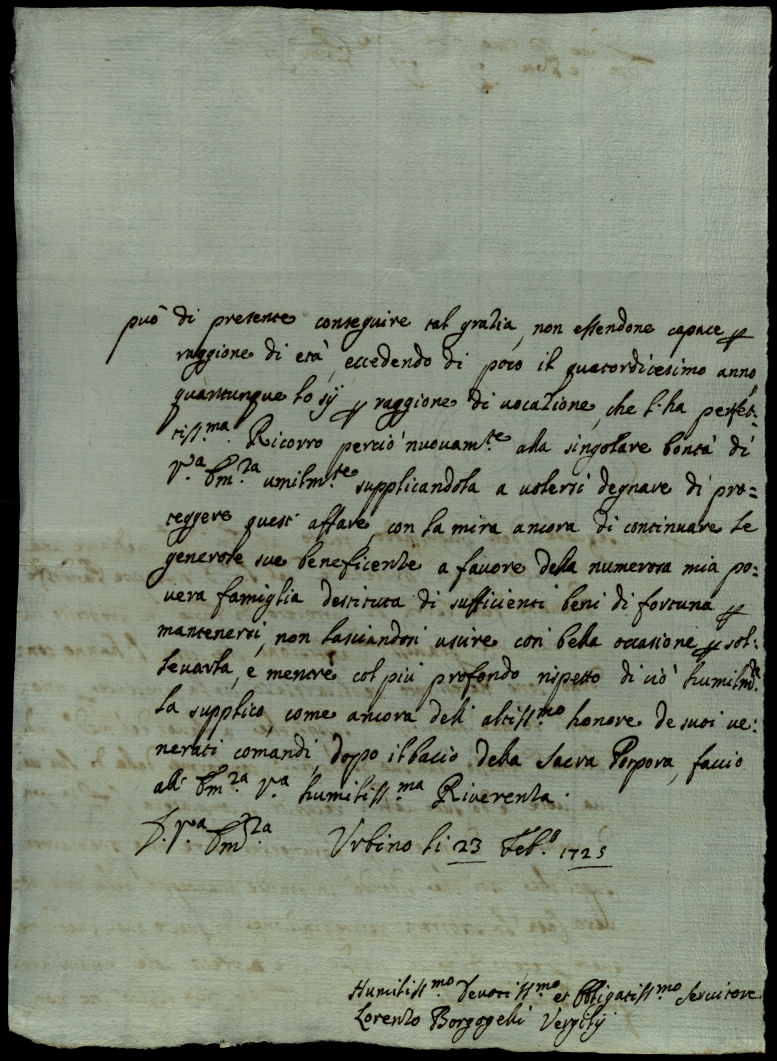 può di presente conseguire tal grazia, non essendone capace p
raggione di età, eccedendo di poco il quatordicesimo anno,
quantunque lo sÿ p raggione di vocazione, che l'ha perfet=
tiss.ma. Ricorro perciò nuovam.te alla singolare bontà di
V.a Em.za umilm.te supplicandola a volersi degnare di pro=
teggere quest' affare, con la mira ancora di continuare le
generose sue beneficenze a favore della numerosa mia po=
vera famiglia destituta di sufficienti beni di fortuna p
mantenersi, non lasciandosi uscire così bella occasione p sol=
levarla, e mentre col più profondo rispetto di ciò humilm.te
la supplico, come ancora dell' altiss.mo honore de suoi ve=
nerati comandi, dopo il bacio della Sacra Porpora, faccio
all' Em.za V.a humiliss.ma Riverenza.
D. V.a Em.za Urbino li 23 Feb.o 1725
Humiliss.mo Devotiss.mo et Obligatiss.mo Servitore
Lorenzo Borgogelli Vergilÿ